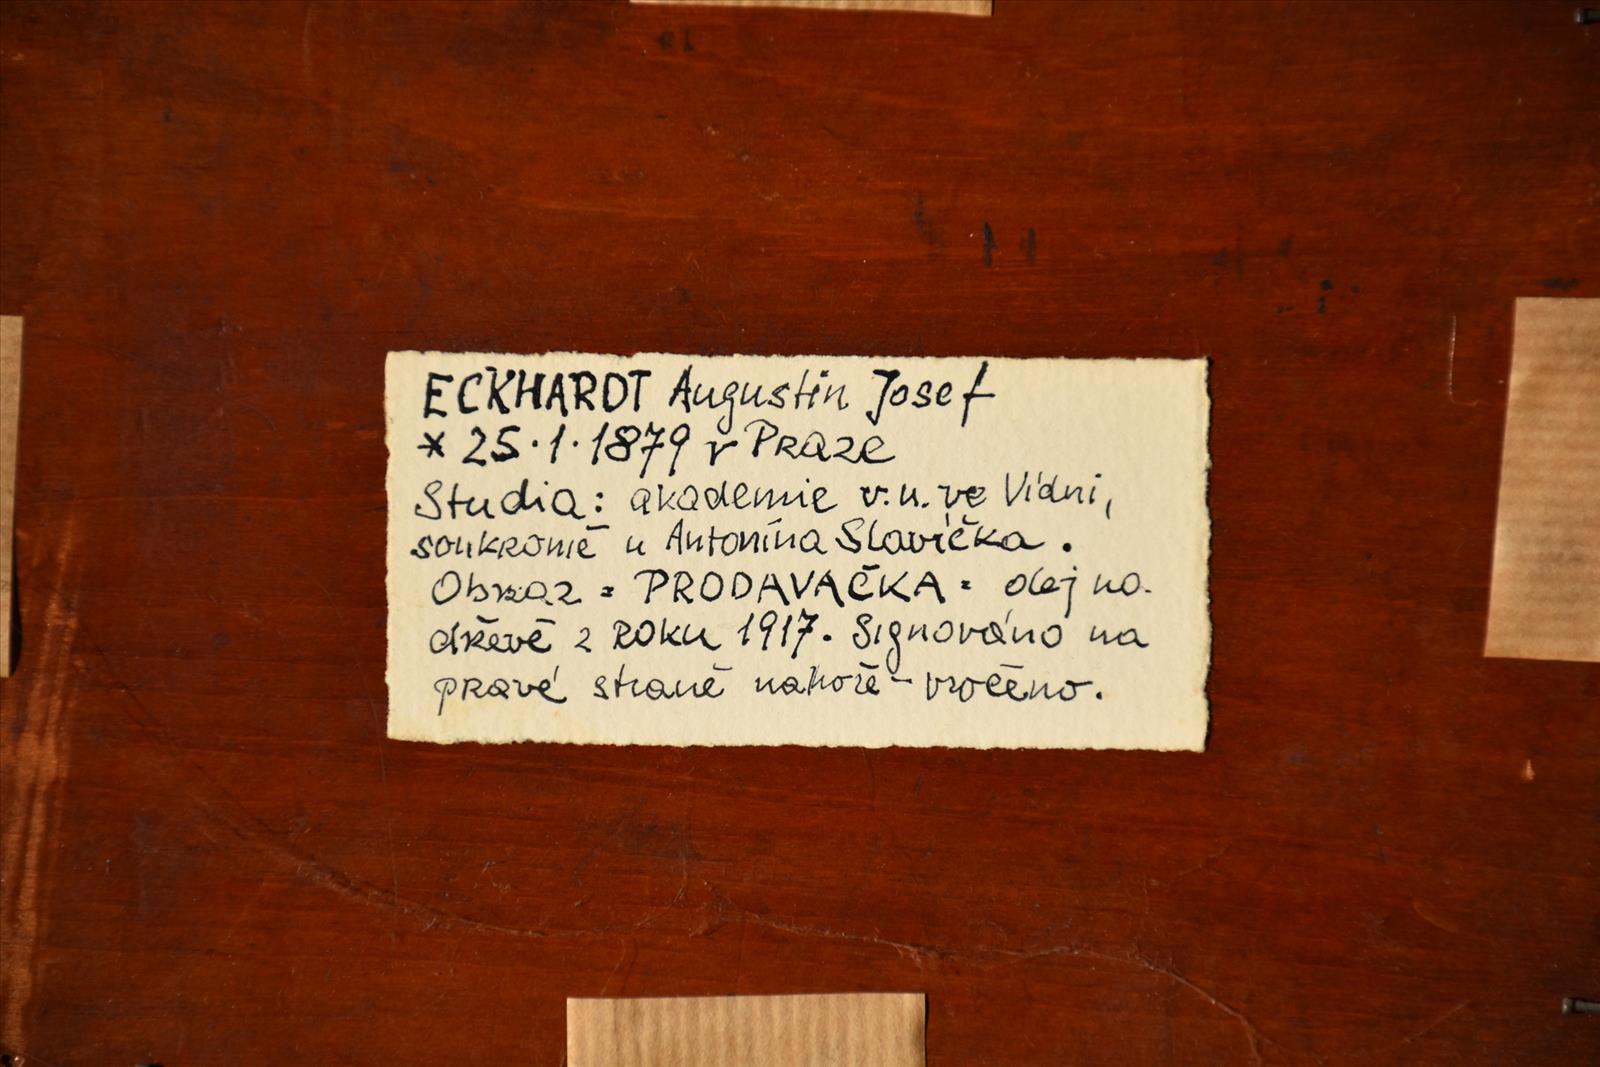 ECKHARDT Augustin Josef
* 25.1.1879 v Praze
Studia: akademie v.u. ve Vídni,
soukromě u Antonína Slavíčka.
Obraz = PRODAVAČKA = olej na
dřevě z roku 1917. Signováno na
pravé straně nahoře - vročeno.